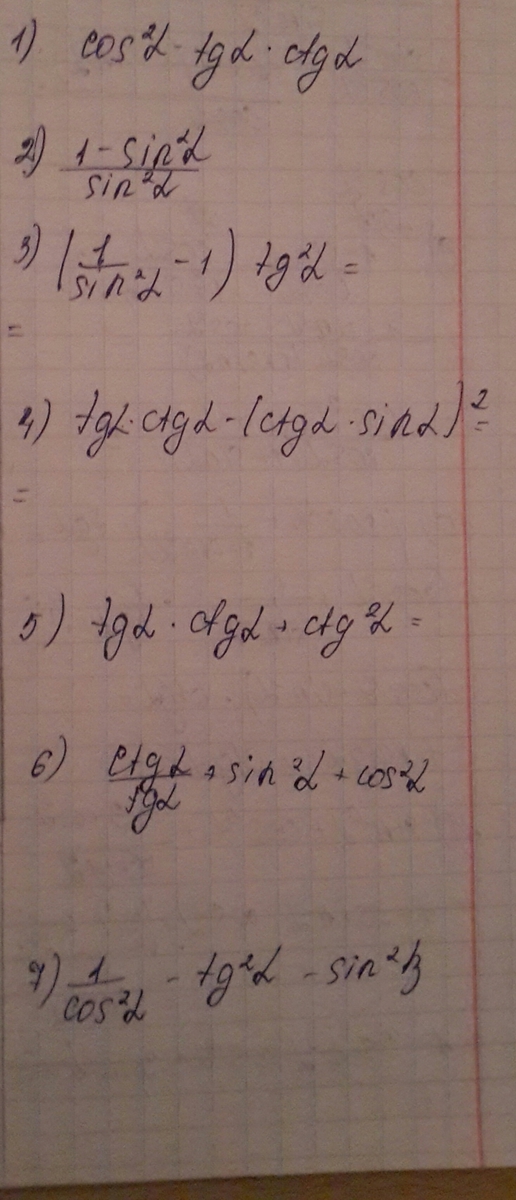 1) cos²α - tgα · ctgα
2) (1 - sin²α)/(sin²α)
3) (1/(sin²α) - 1) tg²α =
=
4) tgα · ctgα - (ctgα · sinα)² =
=
5) tgα · ctgα + ctg²α =
6) ctgα/tgα + sin²α + cos²α
7) 1/(cos²α) - tg²α - sin²β